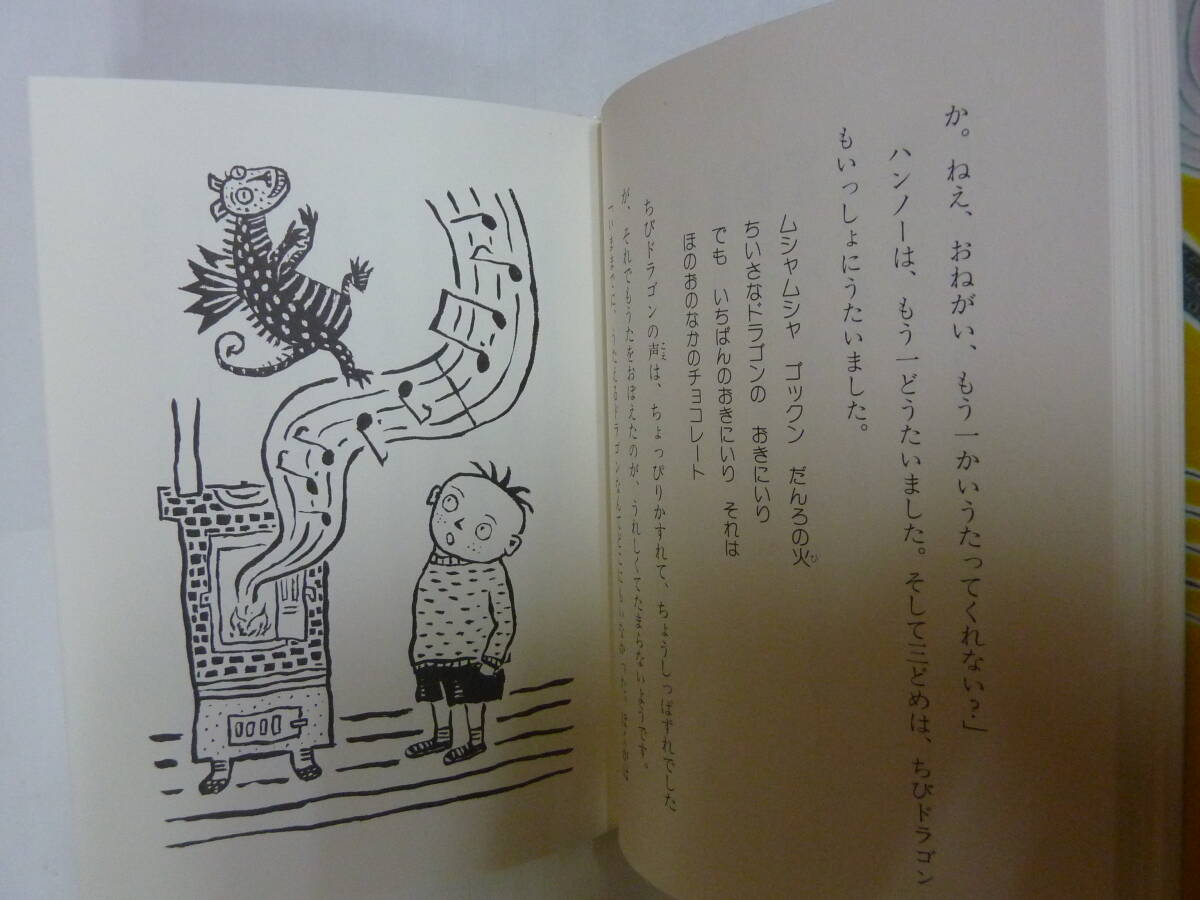 か。ねえ、おねがい、もう一かいうたってくれない？」
ハンノーは、もう一どうたいました。そして三どめは、ちびドラゴン
もいっしょにうたいました。
ムシャムシャ　ゴックン　だんろの火
ちいさなドラゴンの　おきにいり
でも　いちばんのおきにいり　それは
ほのおのなかのチョコレート
ちびドラゴンの声は、ちょっぴりかすれて、ちょうしっぱずれでした
が、それでもうたをおぼえたのが、うれしくてたまらないようです。
「いままでに、うたえるドラゴンなんて